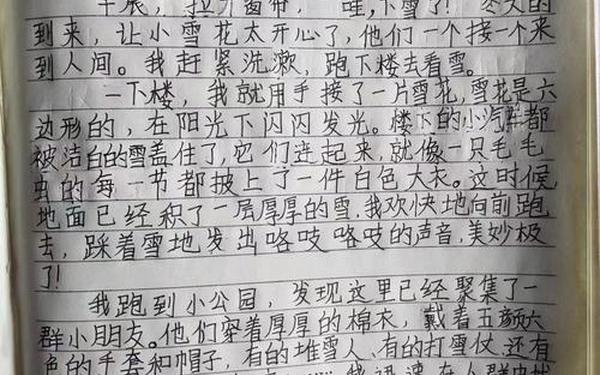 晨,拉开窗帘,“哇,下雪了!”冬天的
到来,让小雪花太开心了,他们一个接一个来
到人间。我赶紧洗漱,跑下楼去看雪。
一下楼,我就用手接了一片雪花,雪花是六
边形的,在阳光下闪闪发光。楼下的小汽车都
被洁白的雪盖住了,它们连起来,就像一只毛毛
虫的每一节都披上了一件白色大衣。这时候
地面已经积了一层厚厚的雪,我欢快地向前跑
去,踩着雪地发出咯吱咯吱的声音,美妙极
了!
我跑到小公园,发现这里已经聚集了一
群小朋友。他们穿着厚厚的棉衣,戴着五颜六
色的手套和帽子,有的堆雪人、有的打雪仗、还有
我迅速在人群中